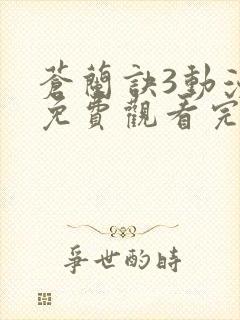 蒼蘭訣3動
免費觀看完
爭世酌時